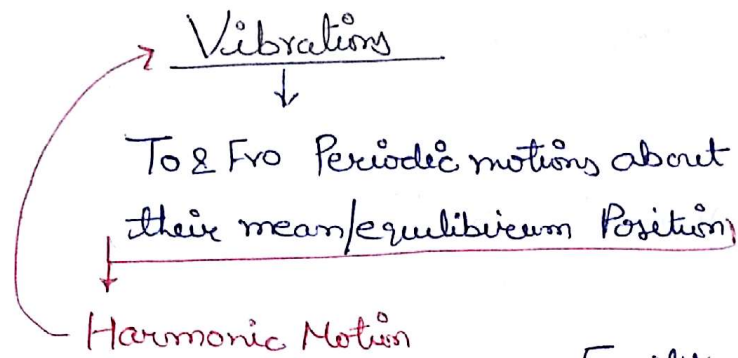 Vibrations
To & Fro Periodic motions about
their mean/equilibirium Position
Harmonic Motion